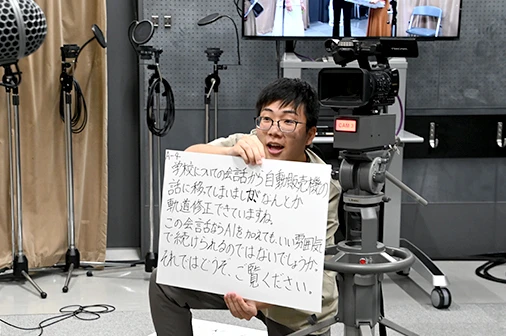 学校についての会話から自動販売機の
話に移ってしまいましたがなんとか
軌道修正できていますね。
この会話ならAIを加えても、いい雰囲気
で続けられるのではないでしょうか。
それではどうぞ、ご覧ください。